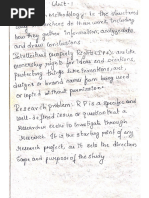 Unit-1
Methodology: to the structured
of there work, including
how they gather information, analyze data
and draw conclusions
Intellectual property Rights (IPR) are like
ownership rights for ideas and creations,
protecting things like inventions, art,
designs or brand names from being used
or copied without permission.
Research problem: R.P is a specific and
well-defined issue or question that a
researcher seeks to investigate through
research. It is the starting point of any
research project, as it sets the direction
scope and purpose of the study.